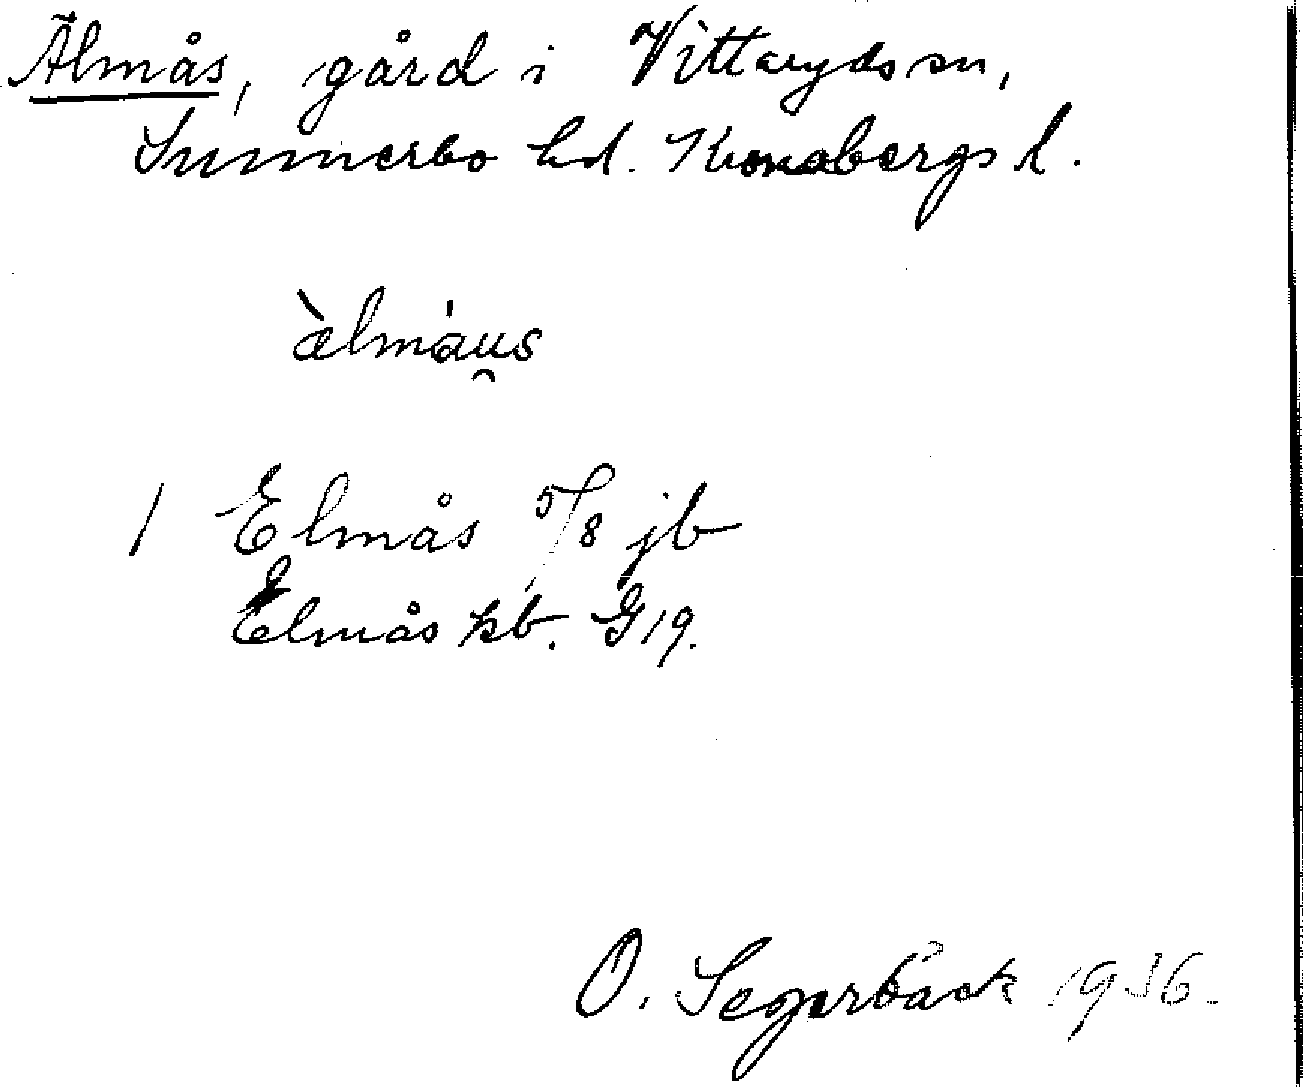 Älmås, gård i Vittaryds sn,
Sunnerbo hd. Kronobergs l.
æ̀lmáu̯s
1 Elmås 5/8 jb
Elmås kb. G 19.
O. Segerbäck 1936.